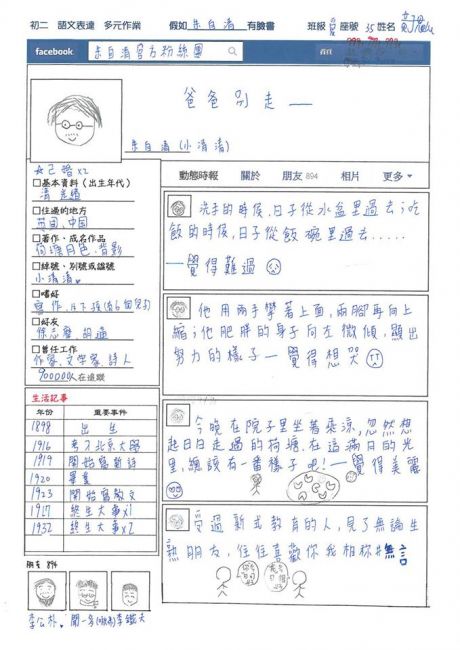 初二 語文表達 多元作業 假如 朱自清 有臉書 班級 座號 35 姓名
facebook 朱自清官方粉絲團 首頁
爸爸別走——
朱自清(小清清)
動態時報 關於 朋友 894 相片 更多
已婚x2
□基本資料(出生年代)
清 光緒
□住過的地方
英國、中國
□著作、成名作品
荷塘月色、背影
□綽號、別號或諡號
小清清
□嗜好
寫作
□好友
徐志摩、胡適
□曾任工作
作家、文學家、詩人
900000人在追蹤
洗手的時候,日子從水盆里過去;吃
飯的時候,日子從飯碗里過去......
—覺得難過
他用兩手攀著上面,兩腳再向上
縮;他肥胖的身子向左微傾,顯出
努力的樣子—覺得想哭
生活記事
年份 重要事件
1898 出生
1916 考了北京大學
1919 開始寫新詩
1920 畢業
1923 開始寫散文
1917 終生大事x1
1932 終生大事x2
今晚在院子里坐著乘涼,忽然想
起日日走過的荷塘.在這滿月的光
里,總該有一番樣子吧!—覺得美麗
受過新式教育的人,見了無論生
熟朋友,往往喜歡你我相稱#無言
朋友 894
李公朴 聞一多 李鐵夫